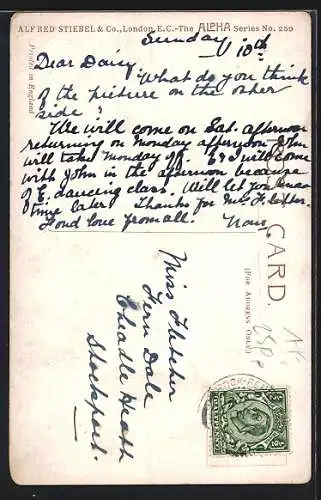 ALFRED STIEBEL & Co., London, E.C.-The ALPHA Series No. 259
Printed in England
Sunday 10th
Dear Daisy
What do you think
of the picture on the other
side?
We will come on Sat. afternoon
returning on Monday afternoon John
will take Monday off. E & I will come
with John in the afternoon because
of E. dancing class. Will let you know
time later. Thanks for Mrs F letter.
Fond love from all.
CARD.
(FOR ADDRESS ONLY.)
Miss Fletcher
Fern Dale
Cheadle Heath
Stockport.